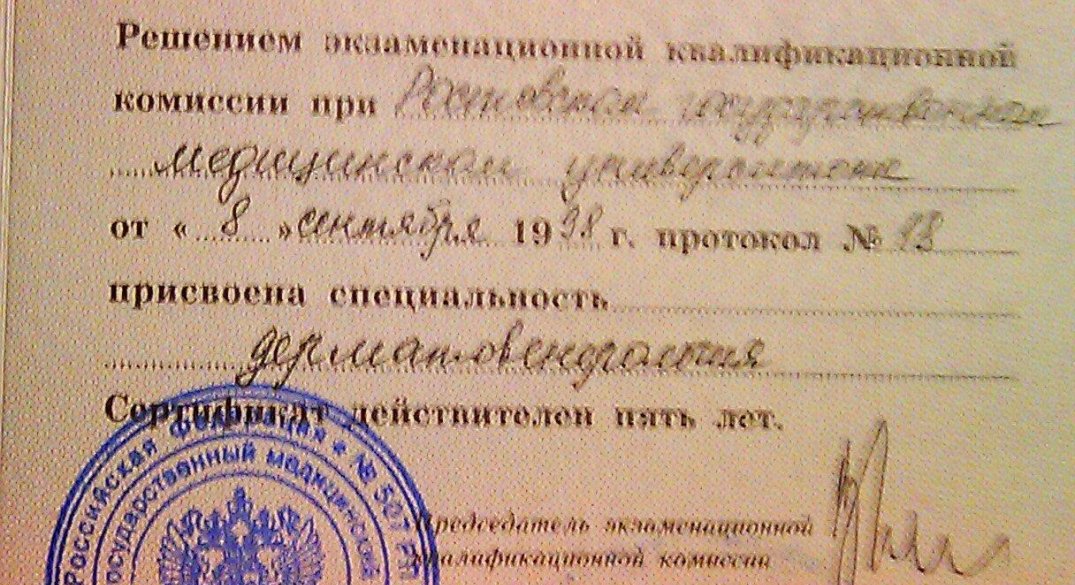 Решением экзаменационной квалификационной
комиссии при Ростовском государственном
медицинском университете
от « 8 » сентября 1998 г. протокол № 13
присвоена специальность
дерматовенерология
Сертификат действителен пять лет.
Российская Федерация * № 507
государственный медицинский
Председатель экзаменационной
квалификационной комиссии